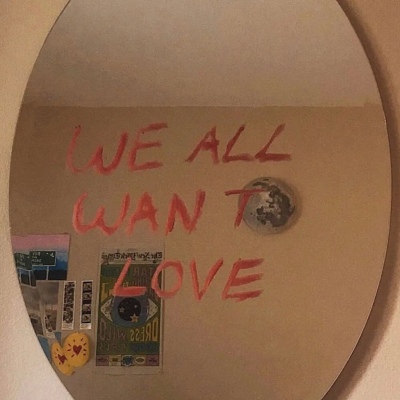 WE ALL
WANT
LOVE